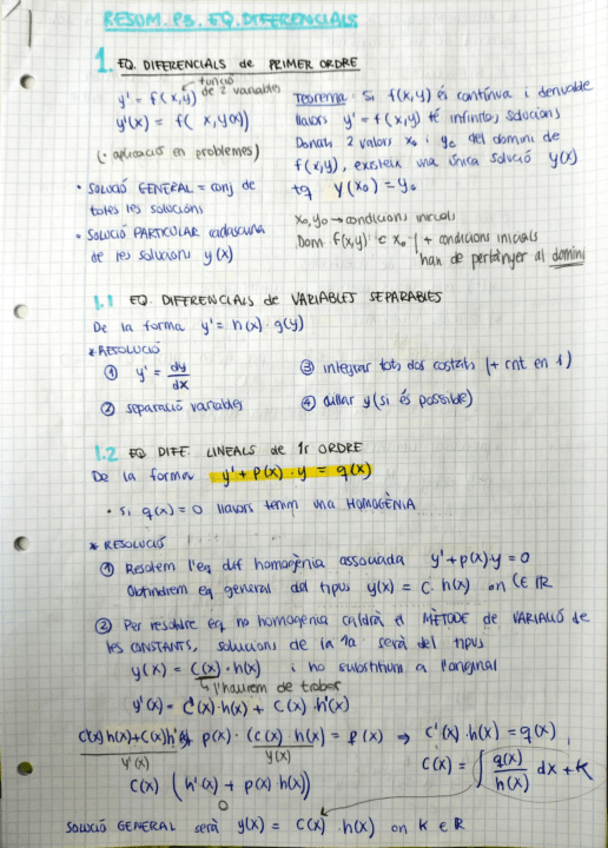 RESUM. P3. EQ. DIFERENCIALS
1. EQ. DIFERENCIALS de PRIMER ORDRE
y' = f(x,y) ← funció de 2 variables
y'(x) = f( x, y(x))
(· aplicació en problemes)
· SOLUCIÓ GENERAL = conj de
totes les solucions
· SOLUCIÓ PARTICULAR cadascuna
de les solucions y(x)
Teorema: Si f(x,y) és contínua i derivable
llavors y' = f(x,y) té infinites solucions
Donats 2 valors x₀ i y₀ del domini de
f(x,y), existeix una única solució y(x)
tq y(x₀) = y₀
x₀, y₀ → condicions inicials
Dom f(x,y) c x₀ + condicions inicials
han de pertànyer al domini
1.1 EQ. DIFERENCIALS de VARIABLES SEPARABLES
De la forma y' = h(x) · g(y)
* RESOLUCIÓ
① y' = dy/dx
② separació variables
③ integrar tots dos costats (+ cnt en 1)
④ aïllar y (si és possible)
1.2 EQ DIFE. LINEALS de 1r ORDRE
De la forma y' + p(x) · y = q(x)
· Si q(x) = 0 llavors tenim una HOMOGÈNIA
* RESOLUCIÓ
① Resolem l'eq dif homogènia associada y' + p(x)·y = 0
Obtindrem eq general del tipus y(x) = C · h(x) on C ∈ ℝ
② Per resoldre eq no homogenia caldrà el MÈTODE de VARIACIÓ de
les CONSTANTS, solucions de la 1a serà del tipus
y(x) = C(x) · h(x) i ho substituim a l'original
↳ l'haurem de trobar
y'(x) = C'(x) · h(x) + C(x) · h'(x)
C'(x) h(x) + C(x) h'(x) + p(x) · (C(x) · h(x)) = q(x) ⇒ C'(x) · h(x) = q(x)
y'(x) y(x)
C(x) = ∫ q(x)/h(x) dx + K
C(x) (h'(x) + p(x) · h(x))
0
SOLUCIÓ GENERAL serà y(x) = C(x) · h(x) on K ∈ ℝ